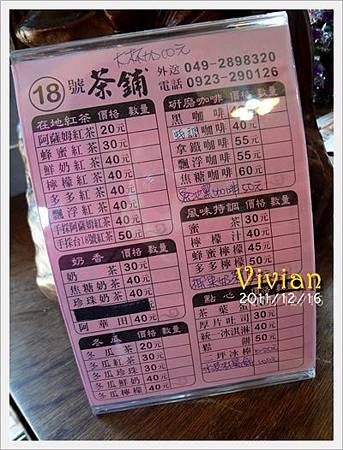 18號茶舖
外送 049-2898320
電話 0923-290126
在地紅茶 價格 數量
阿薩姆紅茶 20元
蜂蜜紅茶 30元
鮮奶紅茶 40元
檸檬紅茶 40元
多多紅茶 40元
飄浮紅茶 40元
手採阿薩姆紅茶 40元
手採台18號紅茶 50元
奶香 價格 數量
奶茶 30元
焦糖奶茶 40元
珍珠奶茶 40元
阿華田 40元
冬瓜 價格 數量
冬瓜茶 20元
冬瓜紅茶 30元
冬瓜珍珠 30元
冬瓜鮮奶 40元
冬瓜檸檬 40元
研磨咖啡 價格 數量
黑咖啡 40元
咖啡 40元
拿鐵咖啡 55元
飄浮咖啡 55元
焦糖咖啡 60元
風味特調 價格 數量
蜜茶 30元
檸檬汁 40元
蜂蜜檸檬 45元
多多檸檬 50元
點心 數量
茶葉蛋
厚片吐司 30元
統一冰淇淋 40元
鬆餅 40元
坪冰棒
Vivian
2011/12/16